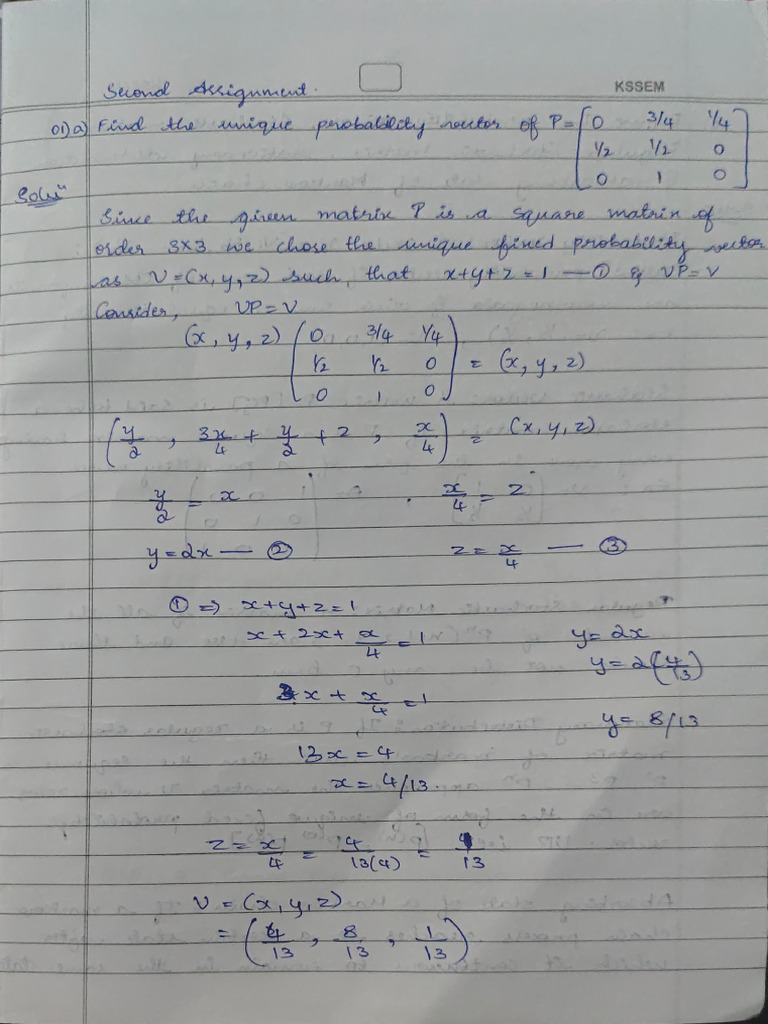 Second Assignment.
KSSEM
01) a) Find the unique probability vector of P = [0 3/4 1/4
1/2 1/2 0
0 1 0]
Solu^n
Since the given matrix P is a square matrix of
order 3x3 we chose the unique fixed probability vector
as V=(x, y, z) such, that x+y+z=1 — ① & VP=V
Consider, VP=V
(x, y, z) (0 3/4 1/4
1/2 1/2 0
0 1 0) = (x, y, z)
(y/2 , 3x/4 + y/2 + z , x/4) = (x, y, z)
y/2 = x x/4 = z
y=2x — ② z=x/4 — ③
① => x+y+z=1
x + 2x + x/4 = 1 y=2x
y=2(4/13)
3x + x/4 = 1
y=8/13
13x=4
x=4/13.
z=x/4 = 4/13(4) = 1/13
V=(x, y, z)
= (4/13 , 8/13 , 1/13)